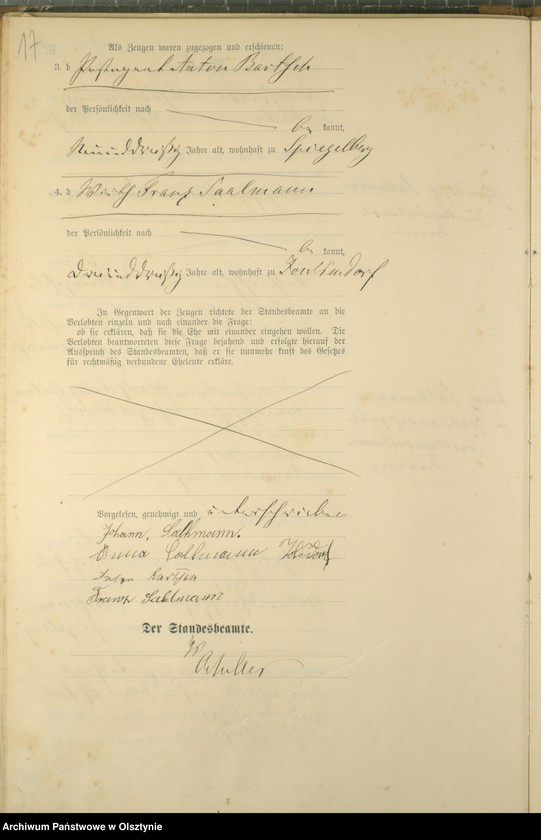 17
Als Zeugen waren zugezogen und erschienen:
3. d Postagent Anton Bartsch
der Persönlichkeit nach
be kannt,
Neununddreißig Jahre alt, wohnhaft zu Spiegelberg
4. d Wirth Franz Saalmann
der Persönlichkeit nach
be kannt,
Dreiunddreißig Jahre alt, wohnhaft zu
In Gegenwart der Zeugen richtete der Standesbeamte an die
Verlobten einzeln und nach einander die Frage:
ob sie erklären, daß sie die Ehe mit einander eingehen wollen. Die
Verlobten beantworteten diese Frage bejahend und erfolgte hierauf der
Ausspruch des Standesbeamten, daß er sie nunmehr kraft des Gesetzes
für rechtmäßig verbundene Eheleute erkläre.
Vorgelesen, genehmigt und unterschrieben
Johann. Sallmann.
Anna Sallmann
Anton Bartsch
Franz Sahlmann
Der Standesbeamte.
Archiwum Państwowe w Olsztynie